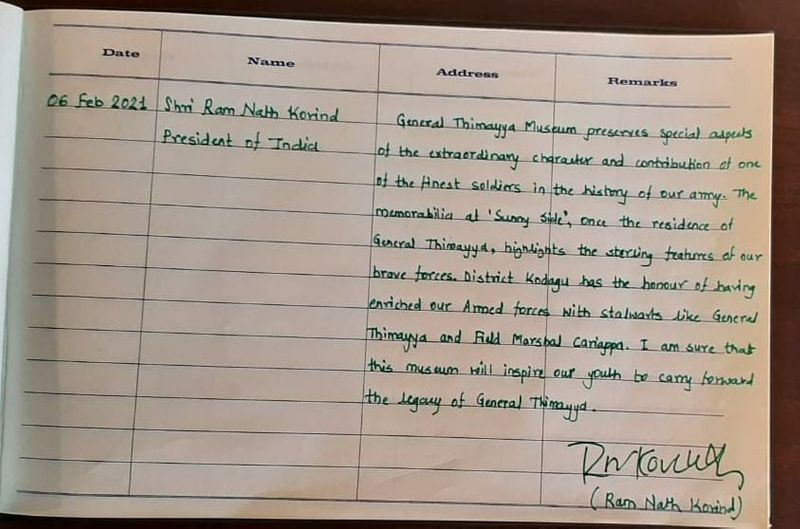 Date Name Address Remarks
06 Feb 2021 Shri Ram Nath Kovind
President of India
General Thimayya Museum preserves special aspects
of the extraordinary character and contribution of one
of the finest soldiers in the history of our army. The
memorabilia at 'Sunny Side', once the residence of
General Thimayya, highlights the sterling features of our
brave forces. District Kodagu has the honour of having
enriched our Armed forces with stalwarts like General
Thimayya and Field Marshal Cariappa. I am sure that
this museum will inspire our youth to carry forward
the legacy of General Thimayya.
RNKovind
(Ram Nath Kovind)